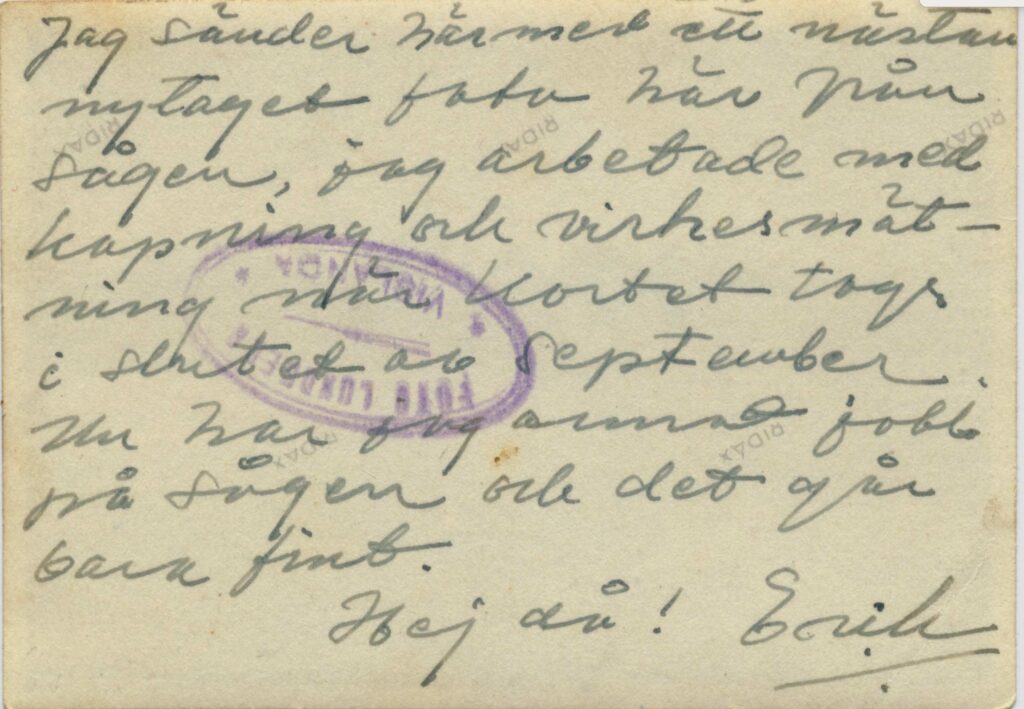 Jag sänder härmed ett nästan
nytaget foto här från
sågen, jag arbetade med
kapning och virkesmät-
ning när kortet togs
i slutet av September.
Nu har jag annat jobb
på sågen och det går
bara fint.
Hej då! Erik
FOTO LUNDBERG
VISLANDA
RIDAX
RIDAX
RIDAX
RIDAX
RIDAX